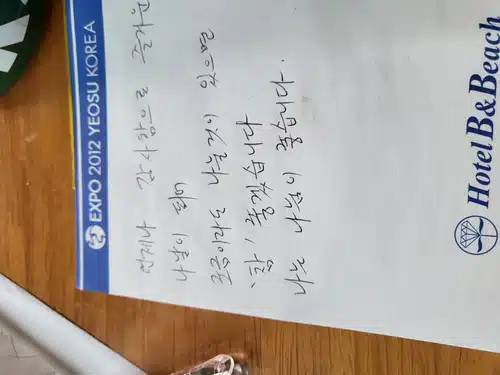 EXPO 2012 YEOSU KOREA
언제나 감사함으로 즐거운
나날이 되며
조금이라도 나눌것이 있으면
참, 좋겠습니다
나는 나눔이 좋습니다.
Hotel B&Beach